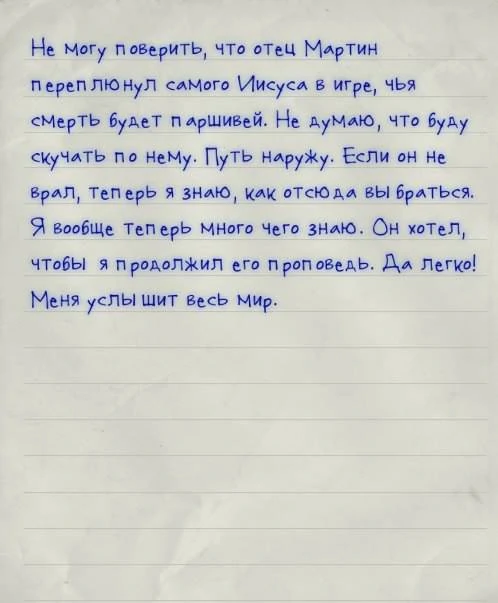 Не могу поверить, что отец Мартин
переплюнул самого Иисуса в игре, чья
смерть будет паршивей. Не думаю, что буду
скучать по нему. Путь наружу. Если он не
врал, теперь я знаю, как отсюда выбраться.
Я вообще теперь много чего знаю. Он хотел,
чтобы я продолжил его проповедь. Да легко!
Меня услышит весь мир.